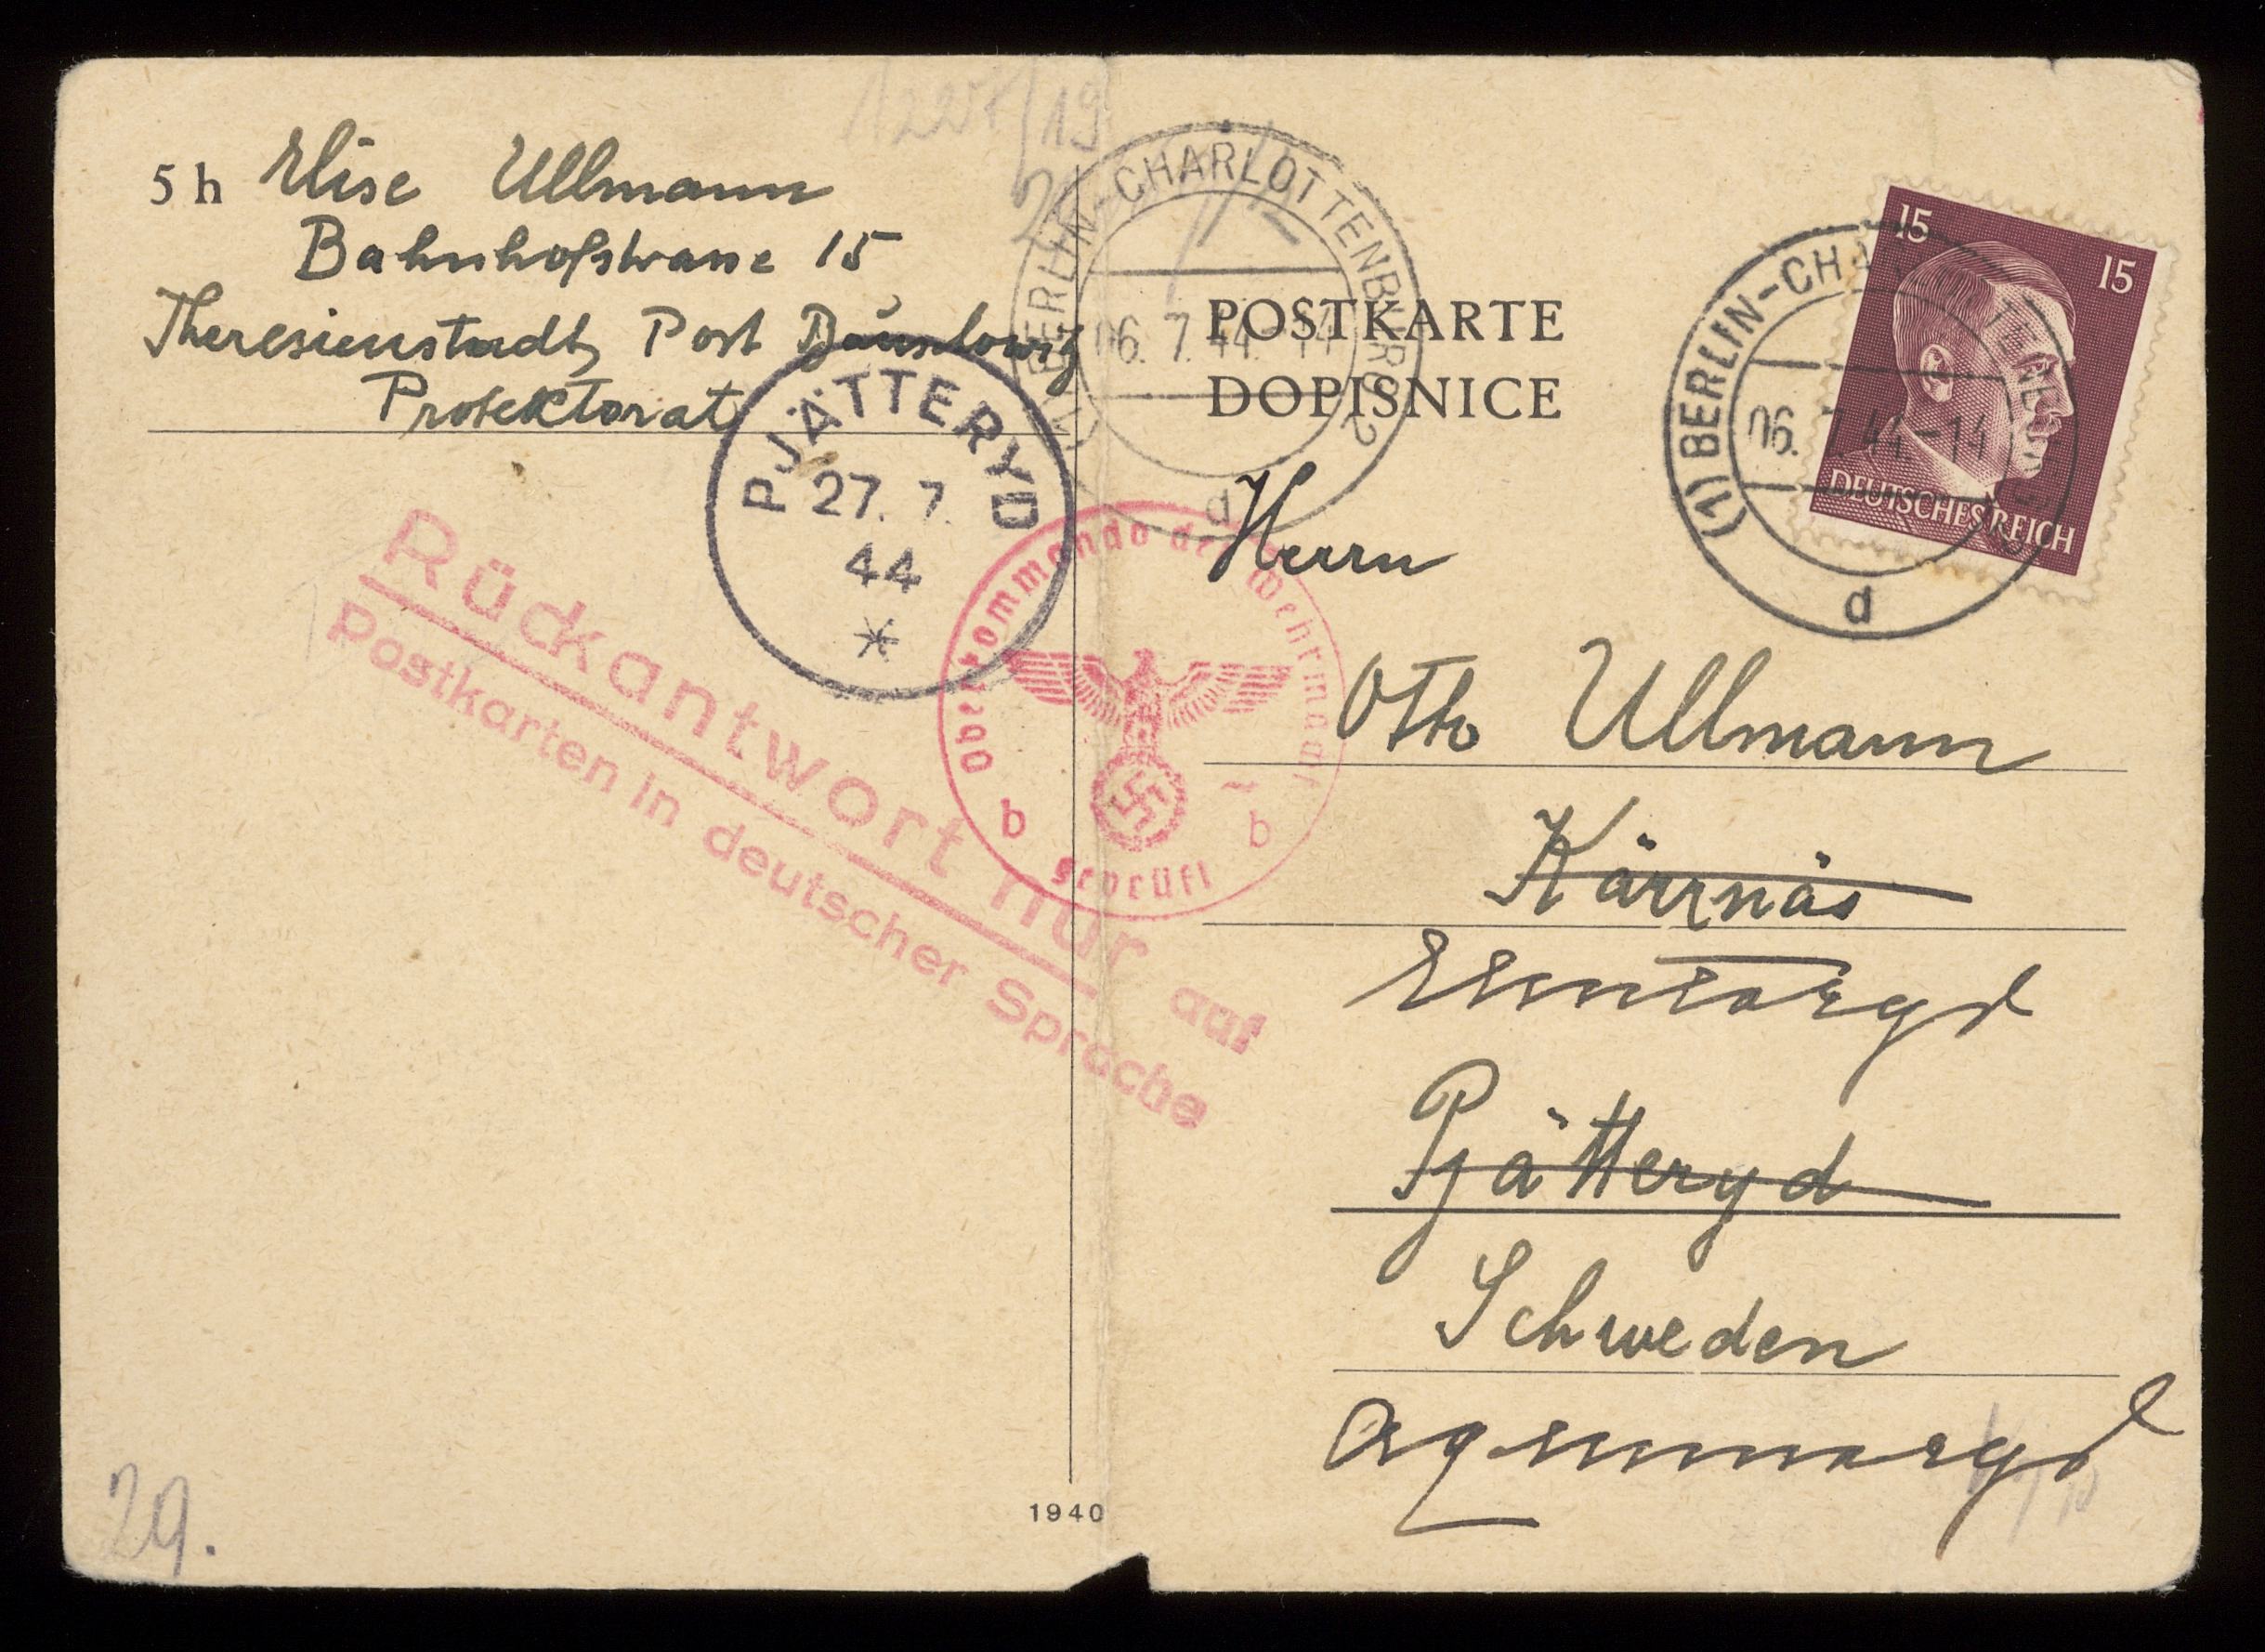 5 h Elise Ullmann
Bahnhofstrasse 15
Theresienstadt, Post Bauschowitz
Protektorat
POSTKARTE
DOPISNICE
(1) BERLIN-CHARLOTTENBURG 2
06. 7. 44.-14
d
15 15
DEUTSCHES REICH
(1) BERLIN-CHA TENB
06. 7 44.-14
d
PJÄTTERYD
27. 7.
44
Oberkommando der Wehrmacht
b b
geprüft
Rückantwort nur auf
Postkarten in deutscher Sprache
Herrn
Otto Ullmann
Kärrnäs
Pjätteryd
Schweden
1940
29.